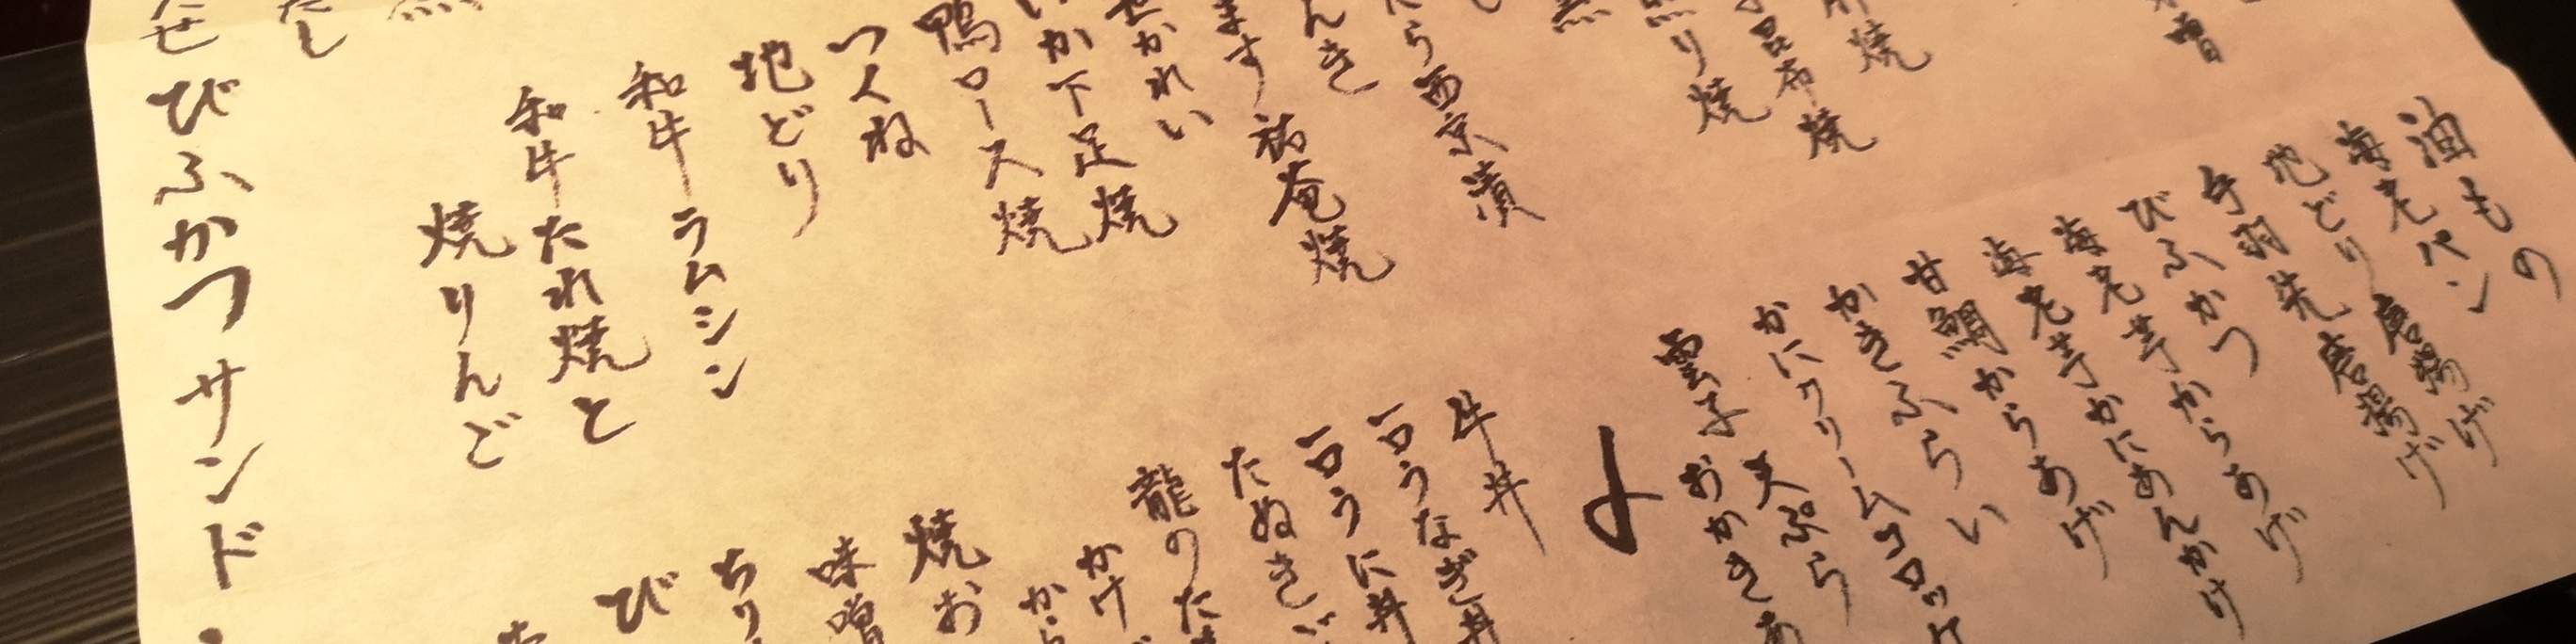 油もの
海老パン
地どり唐揚げ
手羽先唐揚げ
びふかつ
海老芋からあげ
海老芋かにあんかけ
甘鯛からあげ
かきふらい
かにクリームコロッケ
雲子天ぷら
おかきあ
味噌
肝焼
昆布焼
照り焼
たら西京漬
んき
ます祐庵焼
かれい
いか下足焼
鴨ロース焼
つくね
地どり
和牛ラムシン
和牛たれ焼と
焼りんご
牛丼
一口うなぎ丼
一口うに丼
たぬき
龍のた
かけ
から
焼お
味噌
ちり
び
だし
びふかつサンド